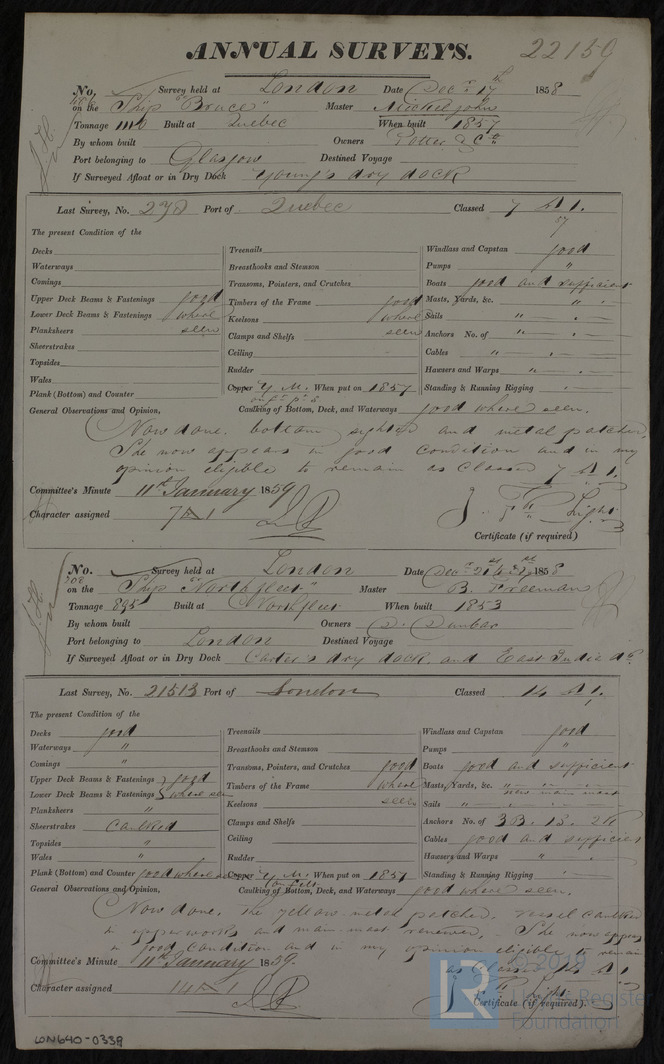 ANNUAL SURVEYS.
22159
No. Survey held at London Date Decr 17th 1858
on the Ship "Bruce" Master
Tonnage 1110 Built at Quebec When built 1857
By whom built Owners Potter & Co
Port belonging to Glasgow Destined Voyage
If Surveyed Afloat or in Dry Dock Young's dry dock
Last Survey, No. Port of Quebec Classed 7 A 1.
57
The present Condition of the
Decks Treenails Windlass and Capstan good
Waterways Breasthooks and Stemson Pumps "
Comings Transoms, Pointers, and Crutches Boats good and sufficient
Upper Deck Beams & Fastenings good Timbers of the Frame good Masts, Yards, &c. " "
Lower Deck Beams & Fastenings where Keelsons where Sails " "
Planksheers seen Clamps and Shelfs seen Anchors No. of " "
Sheerstrakes Ceiling Cables " "
Topsides Rudder Hawsers and Warps " "
Wales Copper Y. M. When put on 1857 Standing & Running Rigging "
Plank (Bottom) and Counter
General Observations and Opinion, Caulking of Bottom, Deck, and Waterways good where seen.
Now done. bottom sighted and metal patched,
She now appears in good condition and in my
opinion eligible to remain as Classed 7 A 1.
Committee's Minute 11th January 1859
Character assigned 7 A 1
Light
Certificate (if required)
No. Survey held at London Date Decr 1858
on the Ship "Northfleet" Master B. Freeman
Tonnage 895 Built at Northfleet When built 1853
By whom built Owners D. Dunbar
Port belonging to London Destined Voyage
If Surveyed Afloat or in Dry Dock Carter's dry dock and East India do.
Last Survey, No. 21513 Port of London Classed 14 A 1.
The present Condition of the
Decks good Treenails Windlass and Capstan good
Waterways " Breasthooks and Stemson Pumps "
Comings " Transoms, Pointers, and Crutches good Boats good and sufficient
Upper Deck Beams & Fastenings good Timbers of the Frame where Masts, Yards, &c. " new main mast
Lower Deck Beams & Fastenings where seen Keelsons seen Sails " "
Planksheers " Clamps and Shelfs Anchors No. of 3 B. 1 S. 2 K
Sheerstrakes Caulked Ceiling Cables good and sufficient
Topsides " Rudder Hawsers and Warps " "
Wales " Copper Y. M. When put on 1857 Standing & Running Rigging "
Plank (Bottom) and Counter good where seen on felt
General Observations and Opinion, Caulking of Bottom, Deck, and Waterways good where seen.
Now done, the yellow metal patched, vessel Caulked
in upperworks and main mast renewed. She now appears
in good Condition and in my opinion eligible to remain
as Classed 14 A 1
Committee's Minute 11th January 1859.
Character assigned 14 A 1
Light
Certificate (if required).
LR © 2019
Lloyd's Register
Foundation
LON640-0339